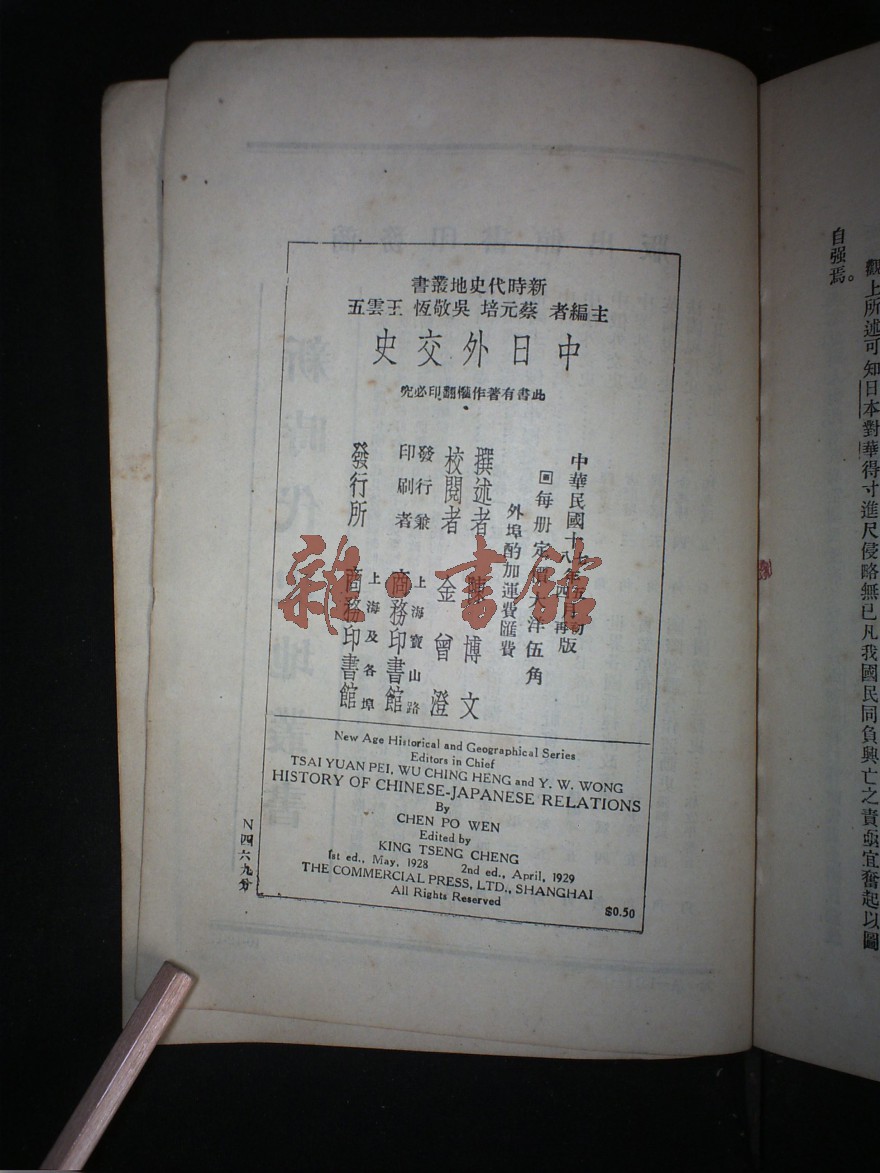 觀上所述可知日本對華得寸進尺侵略無已凡我國民同負興亡之責亟宜奮起以圖
自强焉。
新時代史地叢書
主編者 蔡元培 吳敬恆 王雲五
中日外交史
此書有著作權翻印必究
中華民國十七年五月初版
十八年四月再版
回每册定價大洋伍角
外埠酌加運費匯費
撰述者 陳博文
校閱者 金曾澄
發行兼印刷者 上海寶山路 商務印書館
發行所 上海及各埠 商務印書館
New Age Historical and Geographical Series
Editors in Chief
TSAI YUAN PEI, WU CHING HENG and Y. W. WONG
HISTORY OF CHINESE-JAPANESE RELATIONS
By
CHEN PO WEN
Edited by
KING TSENG CHENG
1st ed., May, 1928 2nd ed., April, 1929
THE COMMERCIAL PRESS, LTD., SHANGHAI
All Rights Reserved
$0.50
N四六九分
雜·書館